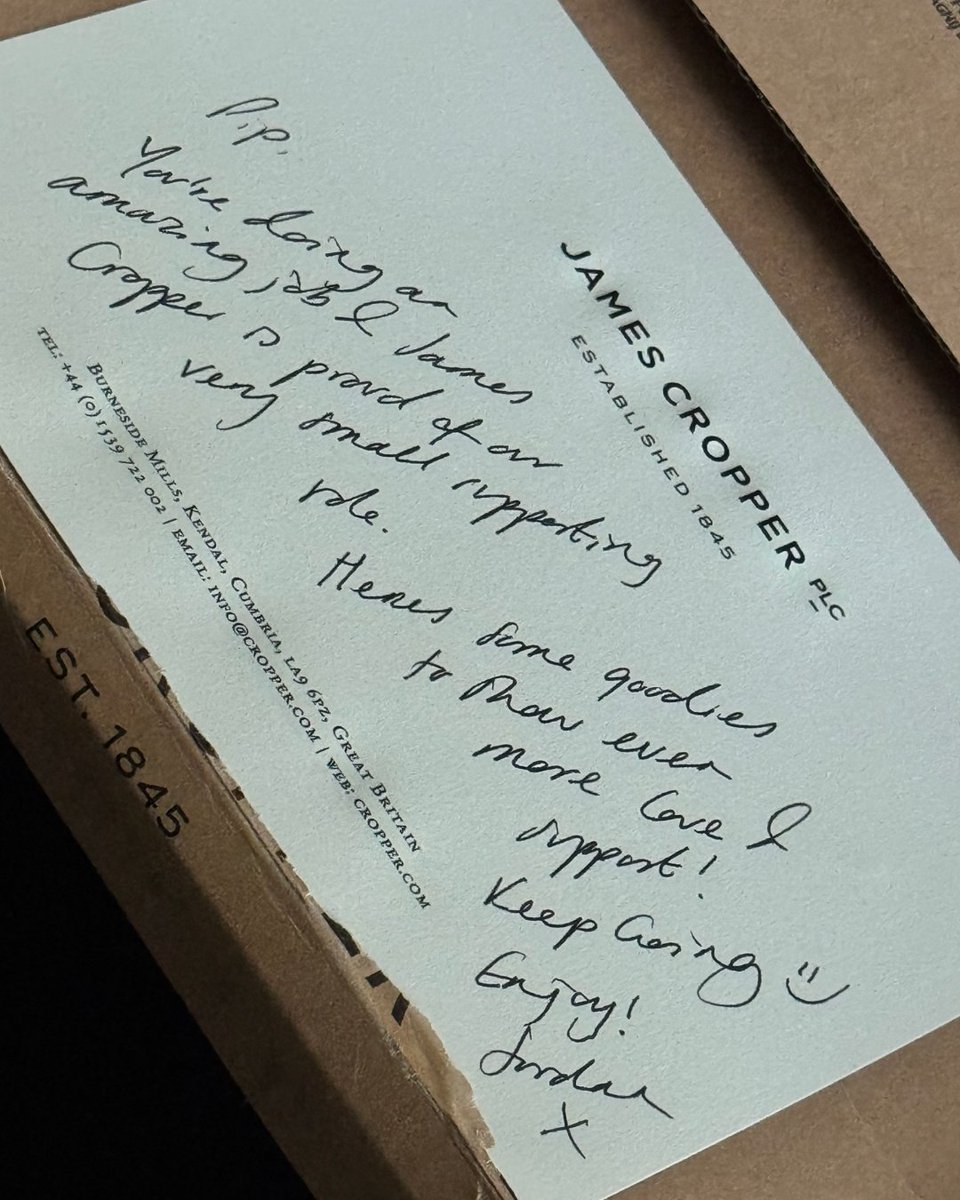 JAMES CROPPER PLC
ESTABLISHED 1845
Pip,
You're doing an
amazing job & James
Cropper is proud of our
very small supporting
role.
Heres some goodies
to show even
more love &
support!
Keep Going
Enjoy!
Jordan
X
BURNESIDE MILLS, KENDAL, CUMBRIA, LA9 6PZ, GREAT BRITAIN
TEL: +44 (0)1539 722 002 | EMAIL: INFO@CROPPER.COM | WEB: CROPPER.COM
EST. 1845